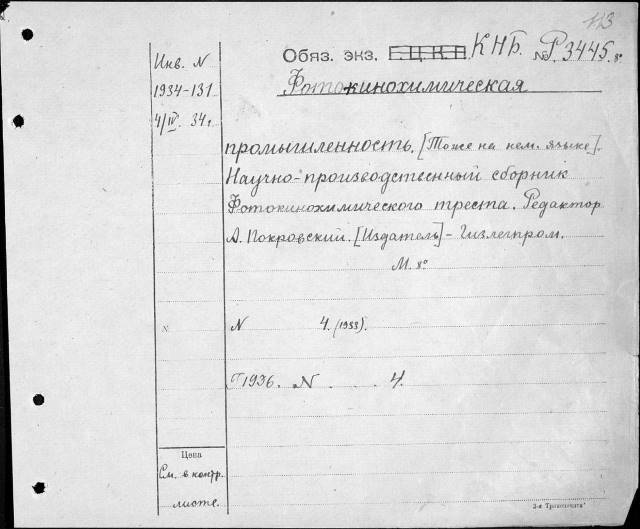 113
Инв. N
1934-131
4/IV. 34 г.
Обяз. экз. Г.Ц.К.П. КНБ. № Р.3445. 8°
Фотокинохимическая
промышленность. [Тоже на нем. языке].
Научно-производственный сборник
Фотокинохимического треста. Редактор
А. Покровский. [Издатель] - Гизлегпром.
М. 8°
N
N 4. (1933).
Г 1936. N . . . 4.
Цена
См. в контр.
листе.